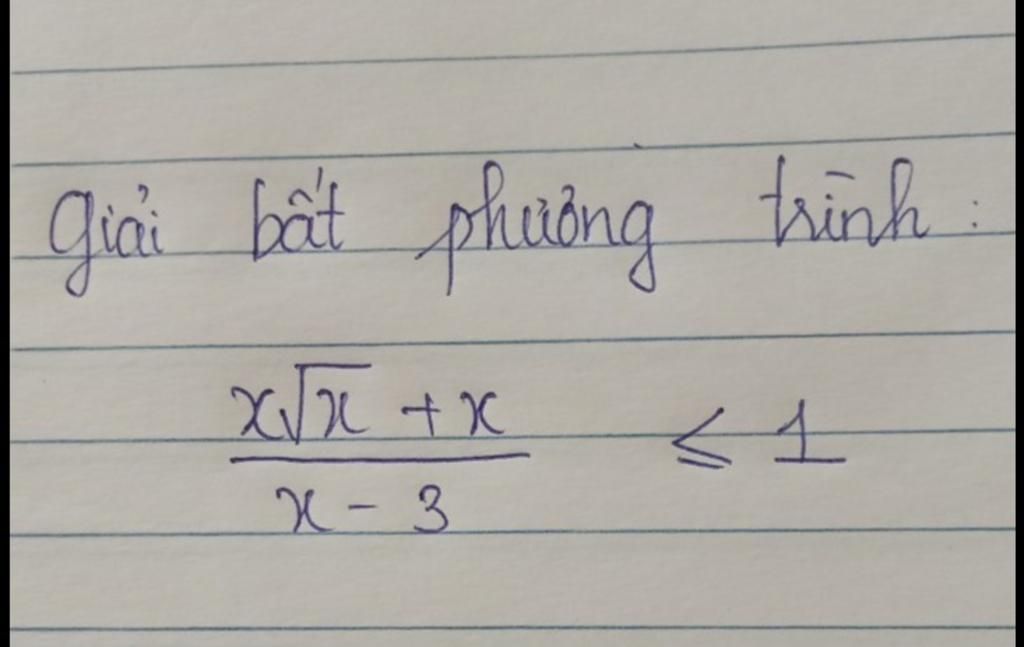 Giải bất phương trình:
\frac{x\sqrt{x} + x}{x - 3} \leq 1